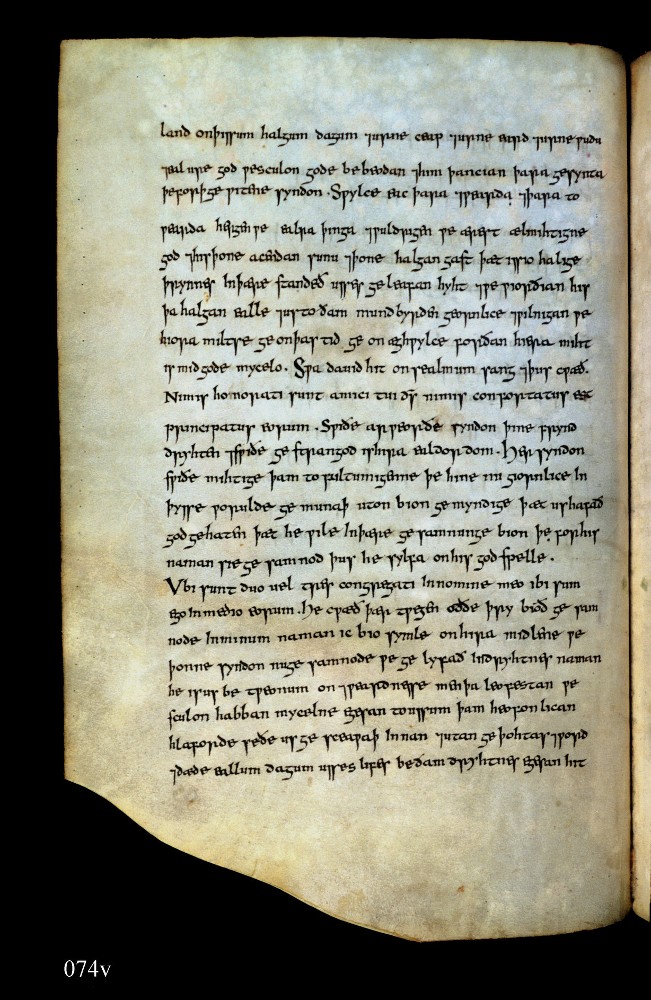 land onþissum halgum dagum ⁊urne ceap ⁊urne eard ⁊urne ƿudu
⁊eal ure god ƿesculon gode bebeodan ⁊him þancian þara gesynta
þeforþge ƿitene syndon. Sƿylce eac þara ⁊ƿearda ⁊þara to
ƿearda herigen ƿe ealra þinga ⁊ƿuldrigen ƿe ærest ælmihtigne
god ⁊his þone acendan sunu ⁊þone halgan gast þæt is sio halige
þrynnes In þære standeð usses geleafan hyht ⁊ƿe ƿiorðian his
þa halgan ealle ⁊us to ðam mundbyrden geornlice ⁊ƿilnigan ƿe
hiora miltse ge on þas tid ge on æghƿylce forðan hiera miht
is mid gode mycelo. Sƿa dauid hit on sealmum sang ⁊þus cƿæð.
Nimis honorati sunt amici tui ds nimis confortatus est
principatus eorum. Sƿiðe arƿeorðe syndon þine frynd
dryhten ⁊sƿiðe gestrangod is hira ealdordom. Her syndon
sƿiðe mihtige þam to fultumigenne þe hine nu giornlice In
þysse ƿorulde gemunaþ uton bion gemyndige þæt us hafað
god gehaten þæt he ƿile In þære gesamnunge bion þe for his
naman sie gesamnod þus he sylfa on his godspelle.
Vbi sunt duo uel tres congregati In nomine meo ibi sum
ego In medio eorum. He cƿæð þær tƿegen oððe þry bioð gesam
node In minum naman ic bio symle on hira midlene ƿe
þonne syndon nu gesamnode ƿe gelyfað In dryhtnes naman
he is us betƿeonum on ⁊ƿeardnesse men þa leofestan ƿe
sculon habban mycelne egesan to ussum þam heofonlican
hlaforde seðe us gesceaƿaþ Innan ⁊utan geþohtas ⁊ƿord
⁊dæde eallum dagum usses lifes be ðam dryhtnes egesan hit
074v